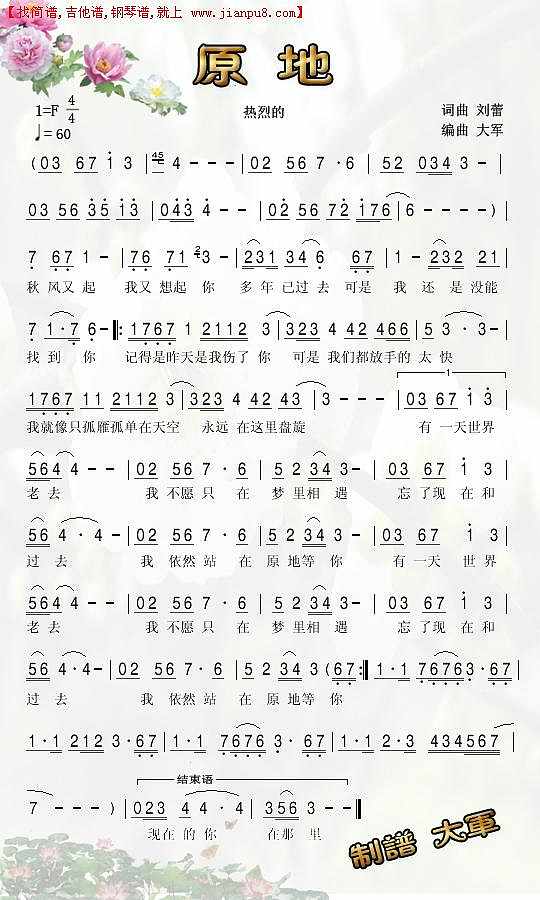 【找简谱,吉他谱,钢琴谱,就上 www.jianpu8.com】
原 地
1=F 4/4 热烈的 词曲 刘蕾
♩= 60 编曲 大军
(03 67 1 3 | 45 4 - - - | 02 56 7 · 6 | 52 034 3 - |
03 56 35 13 | 043 4 - - | 02 56 72 176 | 6 - - - ) |
7 67 1 - | 76 71 2 3 - | 231 34 6 67 | 1 232 1 7 |
秋 风 又 起 我 又 想 起 你 多 年 已 过 去 可 是 我 还 是 没 能
7 1 · 7 6 - ‖: 1767 1 2112 3 | 323 42 466 | 5 3 3 - |
找 到 你 记得是昨天是我伤了你 可是我们都放手的太快
1767 11 2112 3 | 323 4 42 43 | 3 - - - | 1 03 67 1 3 |
我就像只孤雁孤单在天空 永远在这里盘旋 有一天世界
564 4 - - | 02 56 7 · 6 | 52 34 3 - | 03 67 1 3 |
老去 我不愿只在梦里相遇 忘了现在和
56 4 · 4 - | 02 56 7 · 6 | 52 34 3 - | 03 67 1 3 |
过去 我依然站在原地等你 有一天世界
564 4 - - | 02 56 7 · 6 | 52 34 3 - | 03 67 1 3 |
老去 我不愿只在梦里相遇 忘了现在和
56 4 · 4 - | 02 56 7 · 6 | 52 34 3 (67 :‖ 1 · 1 7676 3 · 67 |
过去 我依然站在原地等你
1 · 1 212 3 · 67 | 1 · 1 7676 3 · 3 | 2 · 2 3 434567 |
结束语
7 - - - ) | 023 4 4 · 4 | 356 3 - - ‖
现在的你 在那里
制譜 大軍